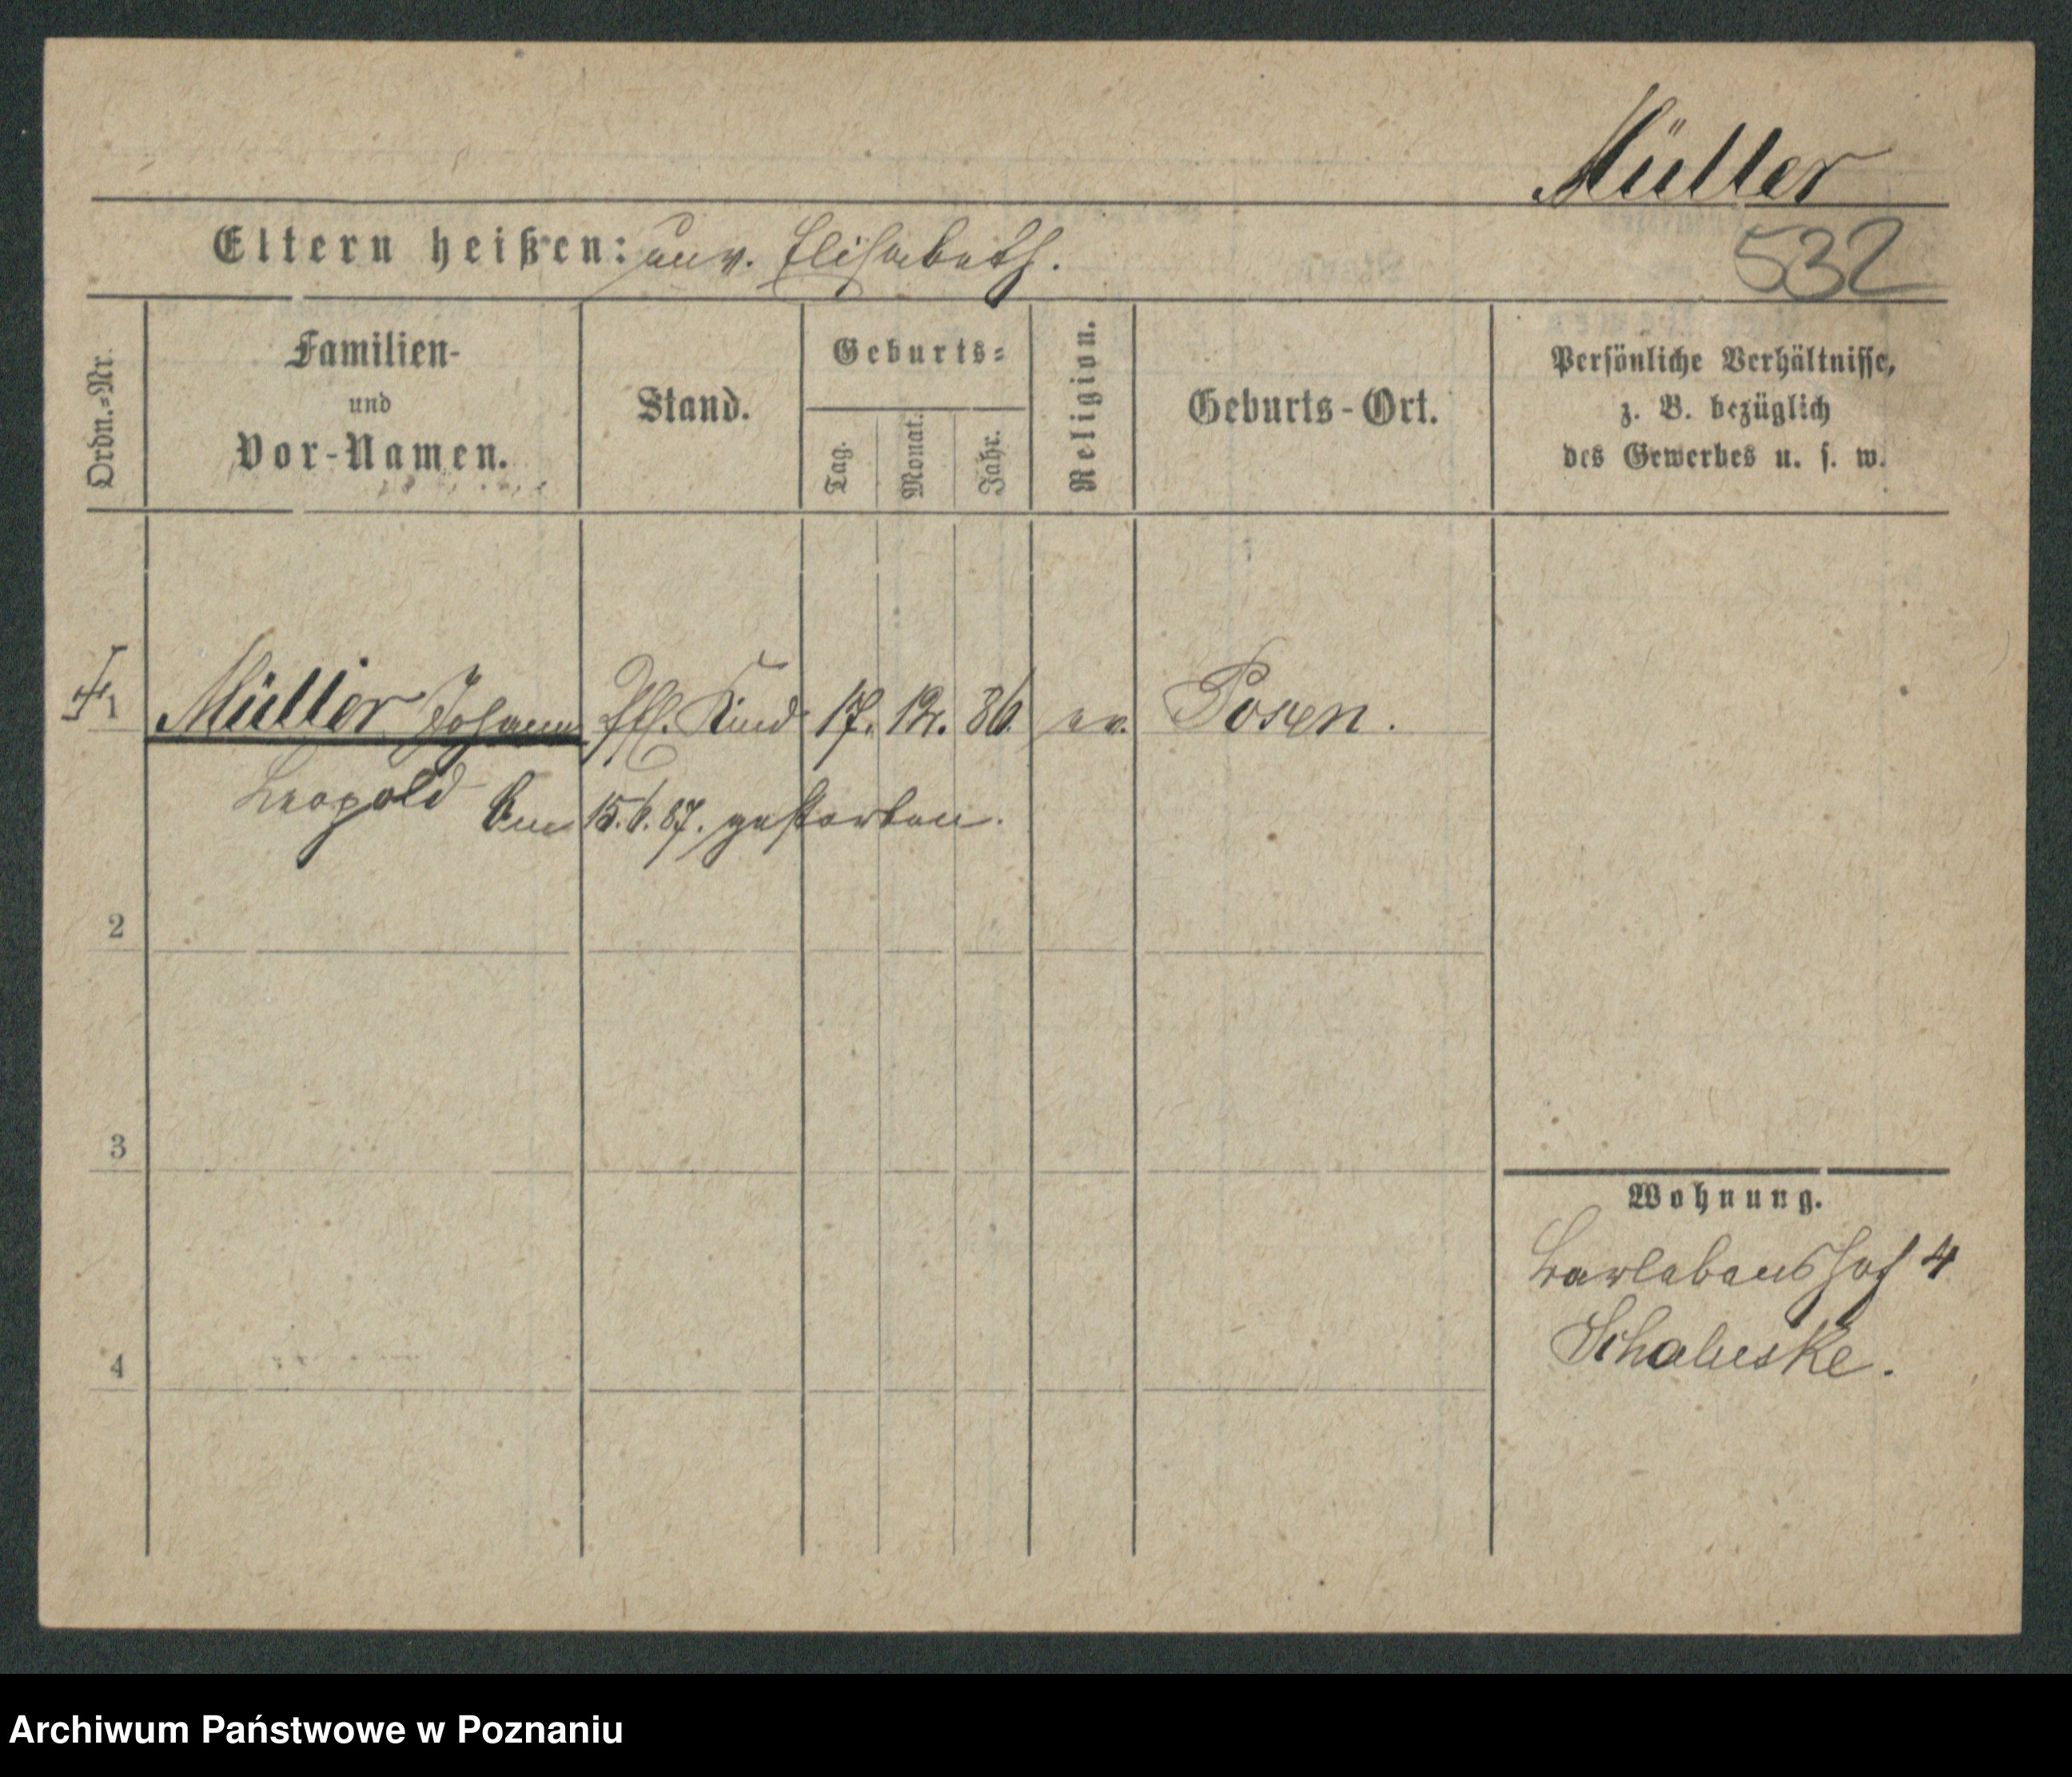 Müller
Eltern heißen: unv. Elisabeth.
532
Ordn.-Nr.
Familien-
und
Vor-Namen.
Stand.
Geburts-
Tag.
Monat.
Jahr.
Religion.
Geburts-Ort.
Persönliche Verhältnisse,
z. B. bezüglich
des Gewerbes u. s. w.
1 Müller Johann Pfl. Kind 17. 12. 86 ev. Posen.
Leopold
Am 15. 6. 87. gestorben.
2
3
Wohnung.
4
Schaluske.
4
Archiwum Państwowe w Poznaniu